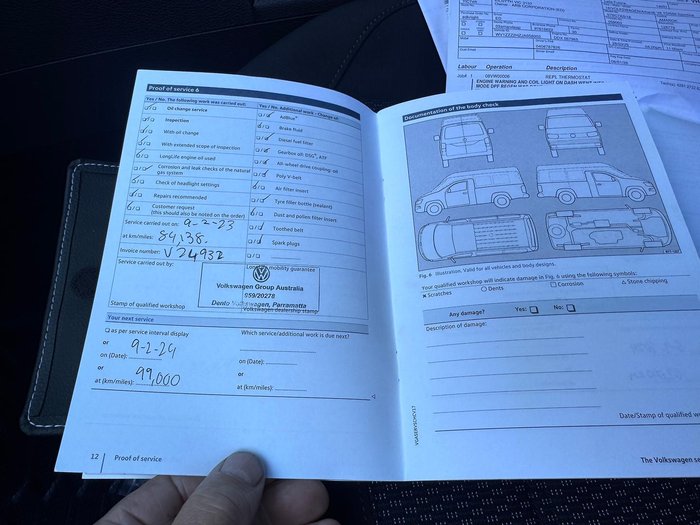 Proof of service 6
Yes / No. The following work was carried out:
Oil change service
Inspection
With oil change
With extended scope of inspection
LongLife engine oil used
Corrosion and leak checks of the natural
gas system
Check of headlight settings
Repairs recommended
Customer request
(this should also be noted on the order)
Service carried out on: 9-2-23
at km/miles: 84,138
Invoice number: V24932
Service carried out by:
Stamp of qualified workshop
Yes / No. Additional work - Change of:
AdBlue®
Brake fluid
Diesel fuel filter
Gearbox oil: DSG®, ATF
All-wheel drive coupling: oil
Poly V-belt
Air filter insert
Tyre filler bottle (sealant)
Dust and pollen filter insert
Toothed belt
Spark plugs
mobility guarantee
Volkswagen Group Australia
959/20278
Volkswagen, Parramatta
Volkswagen dealership stamp
Your next service
as per service interval display
or
9-2-24
on (Date):
or
at (km/miles): 99,000
Which service/additional work is due next?
or
on (Date):
or
at (km/miles):
12 Proof of service
Documentation of the body check
Fig. 6 Illustration. Valid for all vehicles and body designs.
Your qualified workshop will indicate damage in Fig. 6 using the following symbols:
x Scratches
○ Dents
□ Corrosion
△ Stone chipping
Any damage? Yes: No:
Description of damage:
Date/Stamp of qualified
The Volkswagen
Labour Operation Description
REPL THERMOSTAT
ENGINE WARNING AND COIL LIGHT ON DASH WENT